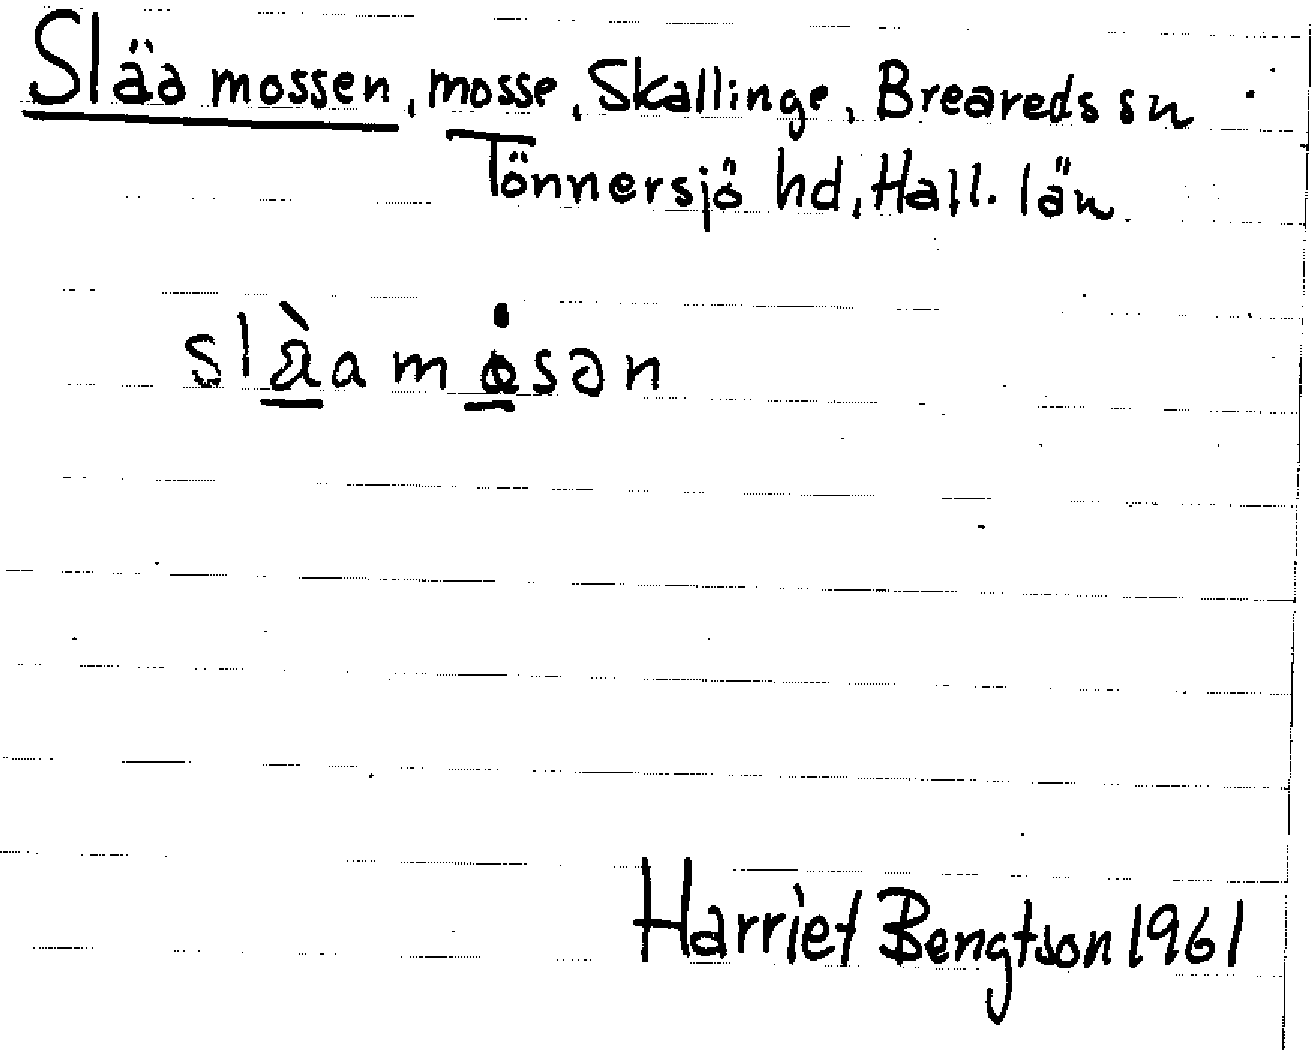 Släamossen, mosse, Skallinge, Breareds sn
Tönnersjö hd, Hall. län
slàamósən
Harriet Bengtson 1961